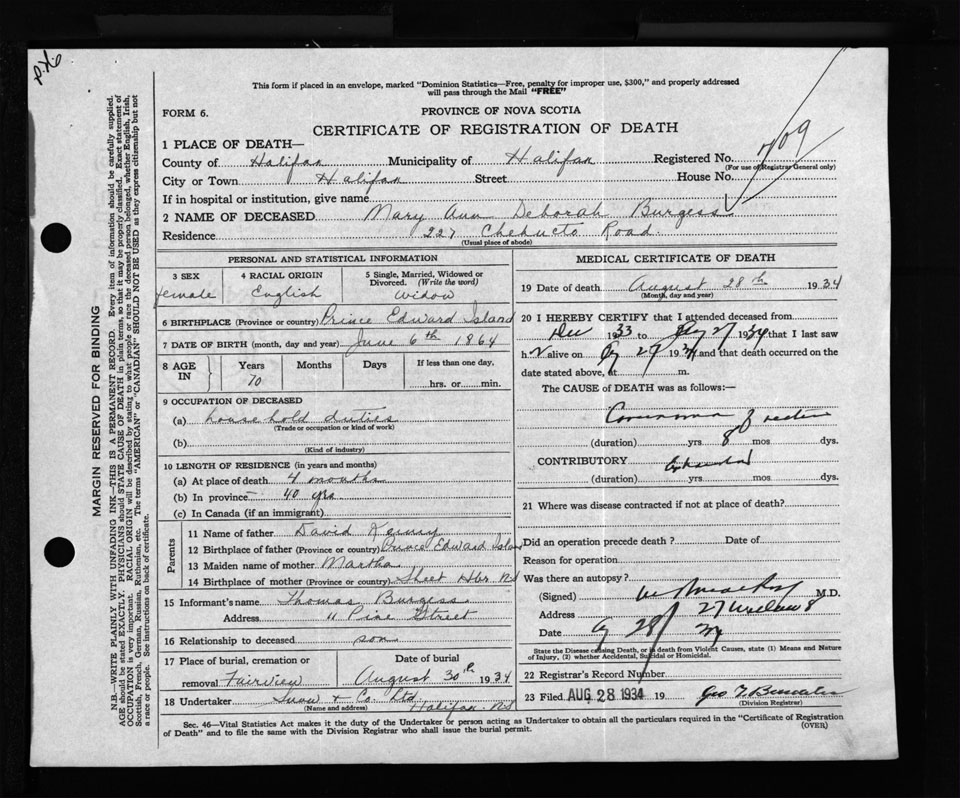 This form if placed in an envelope, marked "Dominion Statistics—Free, penalty for improper use, $300," and properly addressed
will pass through the Mail "FREE"
FORM 6.
PROVINCE OF NOVA SCOTIA
CERTIFICATE OF REGISTRATION OF DEATH
709
1 PLACE OF DEATH—
County of Halifax Municipality of Halifax Registered No.
(For use of Registrar General only)
City or Town Halifax Street House No.
If in hospital or institution, give name
2 NAME OF DECEASED Mary Ann Deborah Burgess
Residence 227 Chebucto Road
(Usual place of abode)
PERSONAL AND STATISTICAL INFORMATION
3 SEX 4 RACIAL ORIGIN 5 Single, Married, Widowed or Divorced. (Write the word)
female English widow
6 BIRTHPLACE (Province or country) Prince Edward Island
7 DATE OF BIRTH (month, day and year) June 6th 1864
8 AGE IN Years Months Days If less than one day,
70 hrs. or min.
9 OCCUPATION OF DECEASED
(a) household duties
(Trade or occupation or kind of work)
(b)
(Kind of industry)
10 LENGTH OF RESIDENCE (in years and months)
(a) At place of death 4 months
(b) In province 40 yrs
(c) In Canada (if an immigrant)
Parents
11 Name of father David Kenny
12 Birthplace of father (Province or country) Prince Edward Island
13 Maiden name of mother Martha
14 Birthplace of mother (Province or country) Sheet Hbr NS
15 Informant's name Thomas Burgess
Address 11 Pine Street
16 Relationship to deceased son
17 Place of burial, cremation or Date of burial
removal Fairview August 30th 1934
18 Undertaker Snow & Co Ltd
(Name and address) Halifax NS
MEDICAL CERTIFICATE OF DEATH
19 Date of death August 28th 1934
(Month, day and year)
20 I HEREBY CERTIFY that I attended deceased from
Dec 1933 to 27 1934 that I last saw
h r alive on 27 1934 and that death occurred on the
date stated above, at m.
The CAUSE of DEATH was as follows:—
of
(duration) yrs 8 mos dys.
CONTRIBUTORY
(duration) yrs mos dys.
21 Where was disease contracted if not at place of death?
Did an operation precede death? Date of
Reason for operation
Was there an autopsy?
(Signed) M.D.
Address 27
Date 28 34
State the Disease causing Death, or in death from Violent Causes, state (1) Means and Nature
of Injury, (2) whether Accidental, Suicidal or Homicidal.
22 Registrar's Record Number
23 Filed AUG 28 1934 19 Geo
(Division Registrar)
Sec. 46—Vital Statistics Act makes it the duty of the Undertaker or person acting as Undertaker to obtain all the particulars required in the "Certificate of Registration
of Death" and to file the same with the Division Registrar who shall issue the burial permit.
(OVER)
MARGIN RESERVED FOR BINDING
N.B.—WRITE PLAINLY WITH UNFADING INK—THIS IS A PERMANENT RECORD. Every item of information should be carefully supplied.
AGE should be stated EXACTLY. PHYSICIANS should STATE CAUSE OF DEATH in plain terms, so that it may be properly classified. Exact statement of
OCCUPATION is very important. RACIAL ORIGIN will be described by stating to what people or race the deceased person belonged, whether English, Irish,
Scottish, French, German, Russian, Ruthenian, etc. The terms "AMERICAN" or "CANADIAN" SHOULD NOT BE USED as they express citizenship but not
a race or people. See instructions on back of certificate.